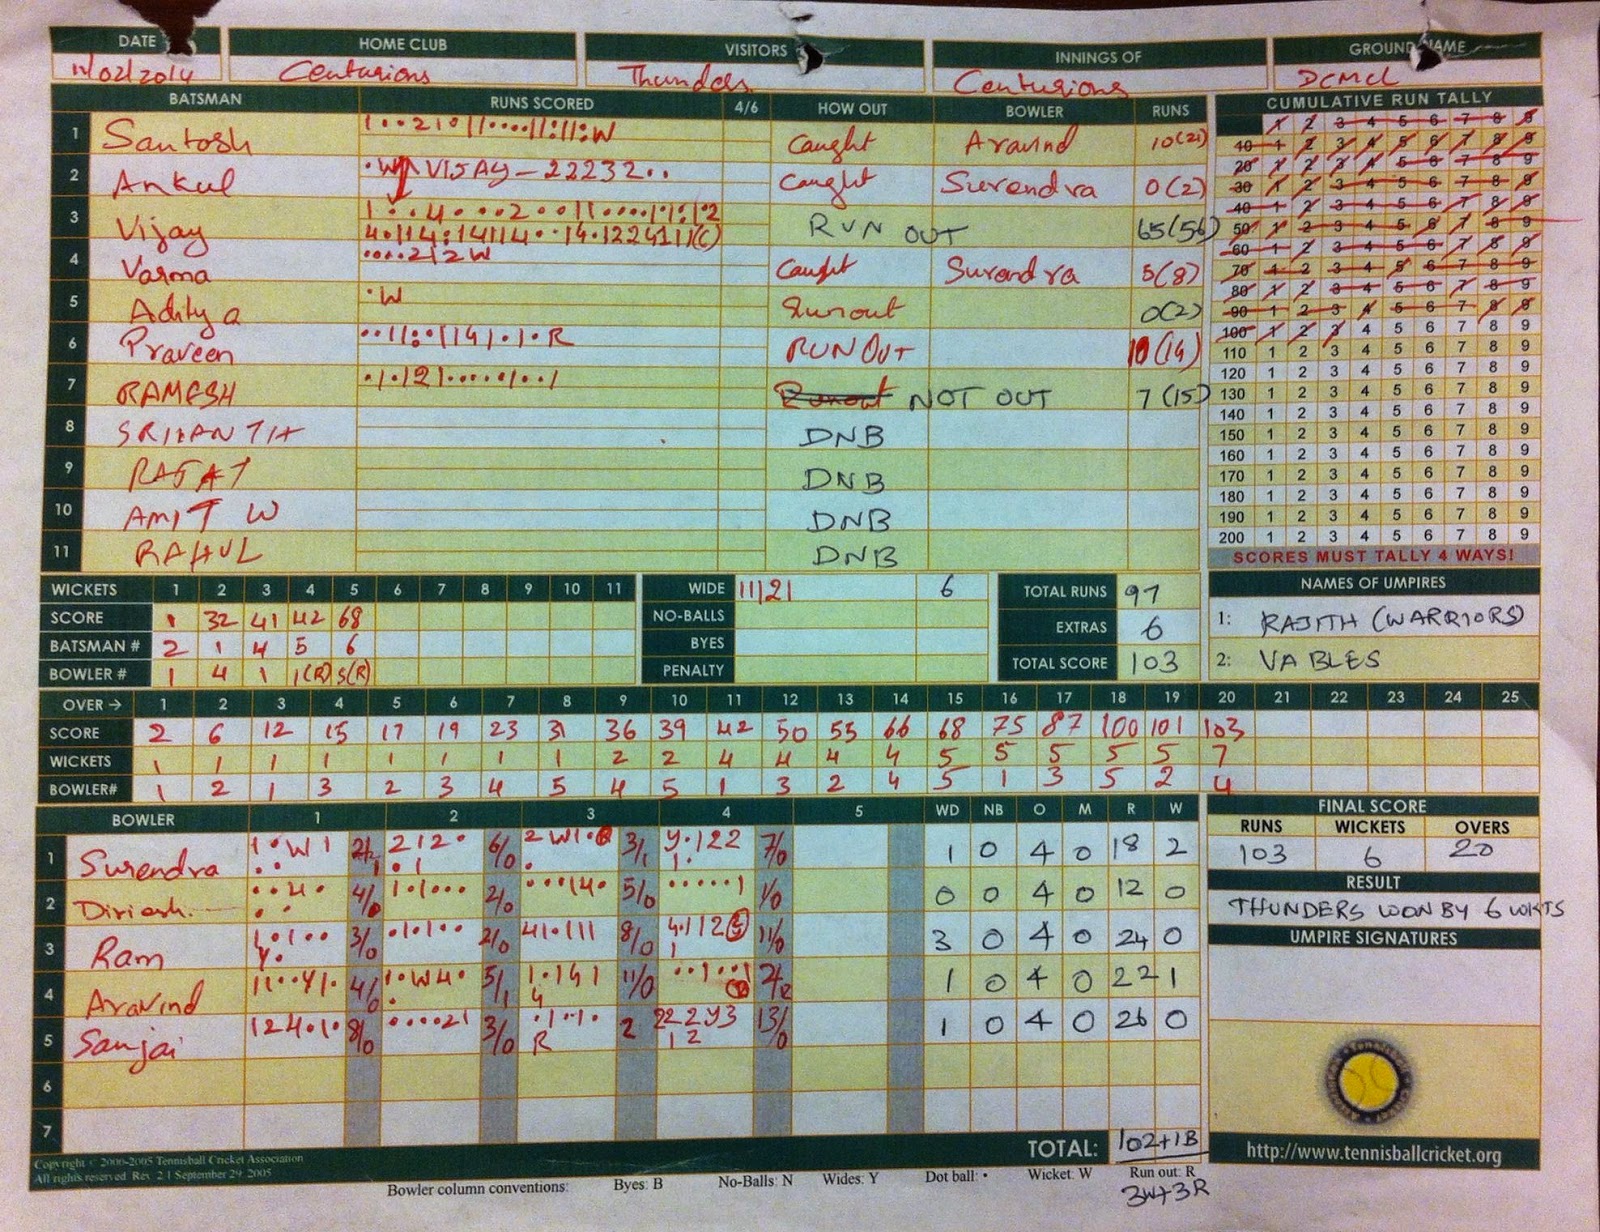 DATE HOME CLUB VISITORS INNINGS OF GROUND NAME
11/02/2014 Centurions Thunders Centurions DCMCL
BATSMAN RUNS SCORED 4/6 HOW OUT BOWLER RUNS CUMULATIVE RUN TALLY
1 Santosh Caught Aravind 10(21)
2 Ankul VIJAY - 22232.. Caught Surendra 0(2)
3 Vijay RUN OUT 65(56)
4 Varma ....212W Caught Surendra 5(8)
5 Aditya .W Runout 0(2)
6 Praveen RUN OUT 10(14)
7 RAMESH .1.121.....1..1 Runout NOT OUT 7(15)
8 SRIKANTH DNB
9 RAJAT DNB
10 AMIT W DNB
11 RAHUL DNB
1 2 3 4 5 6 7 8 9
10 1 2 3 4 5 6 7 8 9
20 1 2 3 4 5 6 7 8 9
30 1 2 3 4 5 6 7 8 9
40 1 2 3 4 5 6 7 8 9
50 1 2 3 4 5 6 7 8 9
60 1 2 3 4 5 6 7 8 9
70 1 2 3 4 5 6 7 8 9
80 1 2 3 4 5 6 7 8 9
90 1 2 3 4 5 6 7 8 9
100 1 2 3 4 5 6 7 8 9
110 1 2 3 4 5 6 7 8 9
120 1 2 3 4 5 6 7 8 9
130 1 2 3 4 5 6 7 8 9
140 1 2 3 4 5 6 7 8 9
150 1 2 3 4 5 6 7 8 9
160 1 2 3 4 5 6 7 8 9
170 1 2 3 4 5 6 7 8 9
180 1 2 3 4 5 6 7 8 9
190 1 2 3 4 5 6 7 8 9
200 1 2 3 4 5 6 7 8 9
SCORES MUST TALLY 4 WAYS!
WICKETS 1 2 3 4 5 6 7 8 9 10 11
SCORE 1 32 41 42 68
BATSMAN # 2 1 4 5 6
BOWLER # 1 4 1 1(R) 5(R)
WIDE 11121 6
NO-BALLS
BYES
PENALTY
TOTAL RUNS 97
EXTRAS 6
TOTAL SCORE 103
NAMES OF UMPIRES
1: RAJITH (WARRIORS)
2: VABLES
OVER → 1 2 3 4 5 6 7 8 9 10 11 12 13 14 15 16 17 18 19 20 21 22 23 24 25
SCORE 2 6 12 15 17 19 23 31 36 39 42 50 55 66 68 75 87 100 101 103
WICKETS 1 1 1 1 1 1 1 1 2 2 4 4 4 4 5 5 5 5 5 7
BOWLER# 1 2 1 3 2 3 4 5 4 5 1 3 2 4 5 1 3 5 2 4
BOWLER 1 2 3 4 5 WD NB O M R W
1 Surendra 1.W1.. 212..1 6/0 3/1 Y.1221. 7/0 1 0 4 0 18 2
2 ..4... 4/0 1.1... 2/0 ...14. 5/0 .....1 1/0 0 0 4 0 12 0
3 Ram 1.1..Y. 3/0 .1.1.. 2/0 41.111 8/0 11/0 3 0 4 0 24 0
4 Aravind 11..Y1. 4/0 1.W4.. 5/1 1.1414 11/0 1 0 4 0 22 1
5 Sanjai 124.1.0 8/0 ....21 3/0 .1.1.R 2 222Y312 13/0 1 0 4 0 26 0
6
7
TOTAL: 102+1B
FINAL SCORE
RUNS WICKETS OVERS
103 6 20
RESULT
THUNDERS WON BY 6 WKTS
UMPIRE SIGNATURES
http://www.tennisballcricket.org
Copyright © 2000-2005 Tennisball Cricket Association
All rights reserved. Rev. 2.1 September 29, 2005
Bowler column conventions: Byes: B No-Balls: N Wides: Y Dot ball: • Wicket: W Run out: R
3W+3R